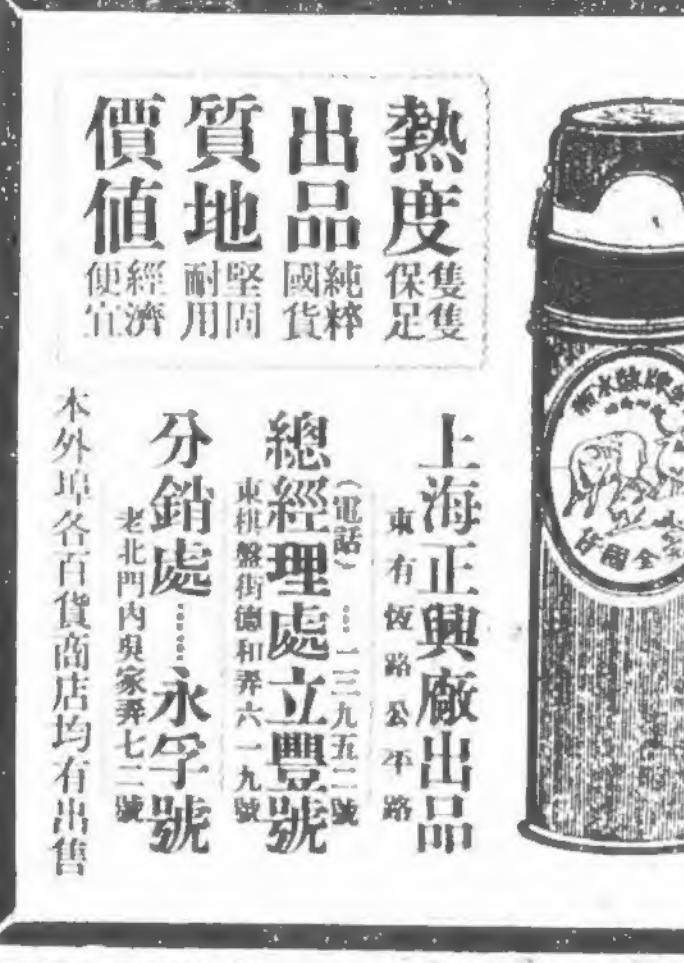 熱度
隻隻
保足
出品
純粹
國貨
質地
堅固
耐用
價值
經濟
便宜
上海正興廠出品
東有恆路公平路
(電話)
總經理處立豐號
東棋盤街德和弄六一九號
分銷處……永孚號
老北門內吳家弄七二號
本外埠各百貨商店均有出售
全國貨